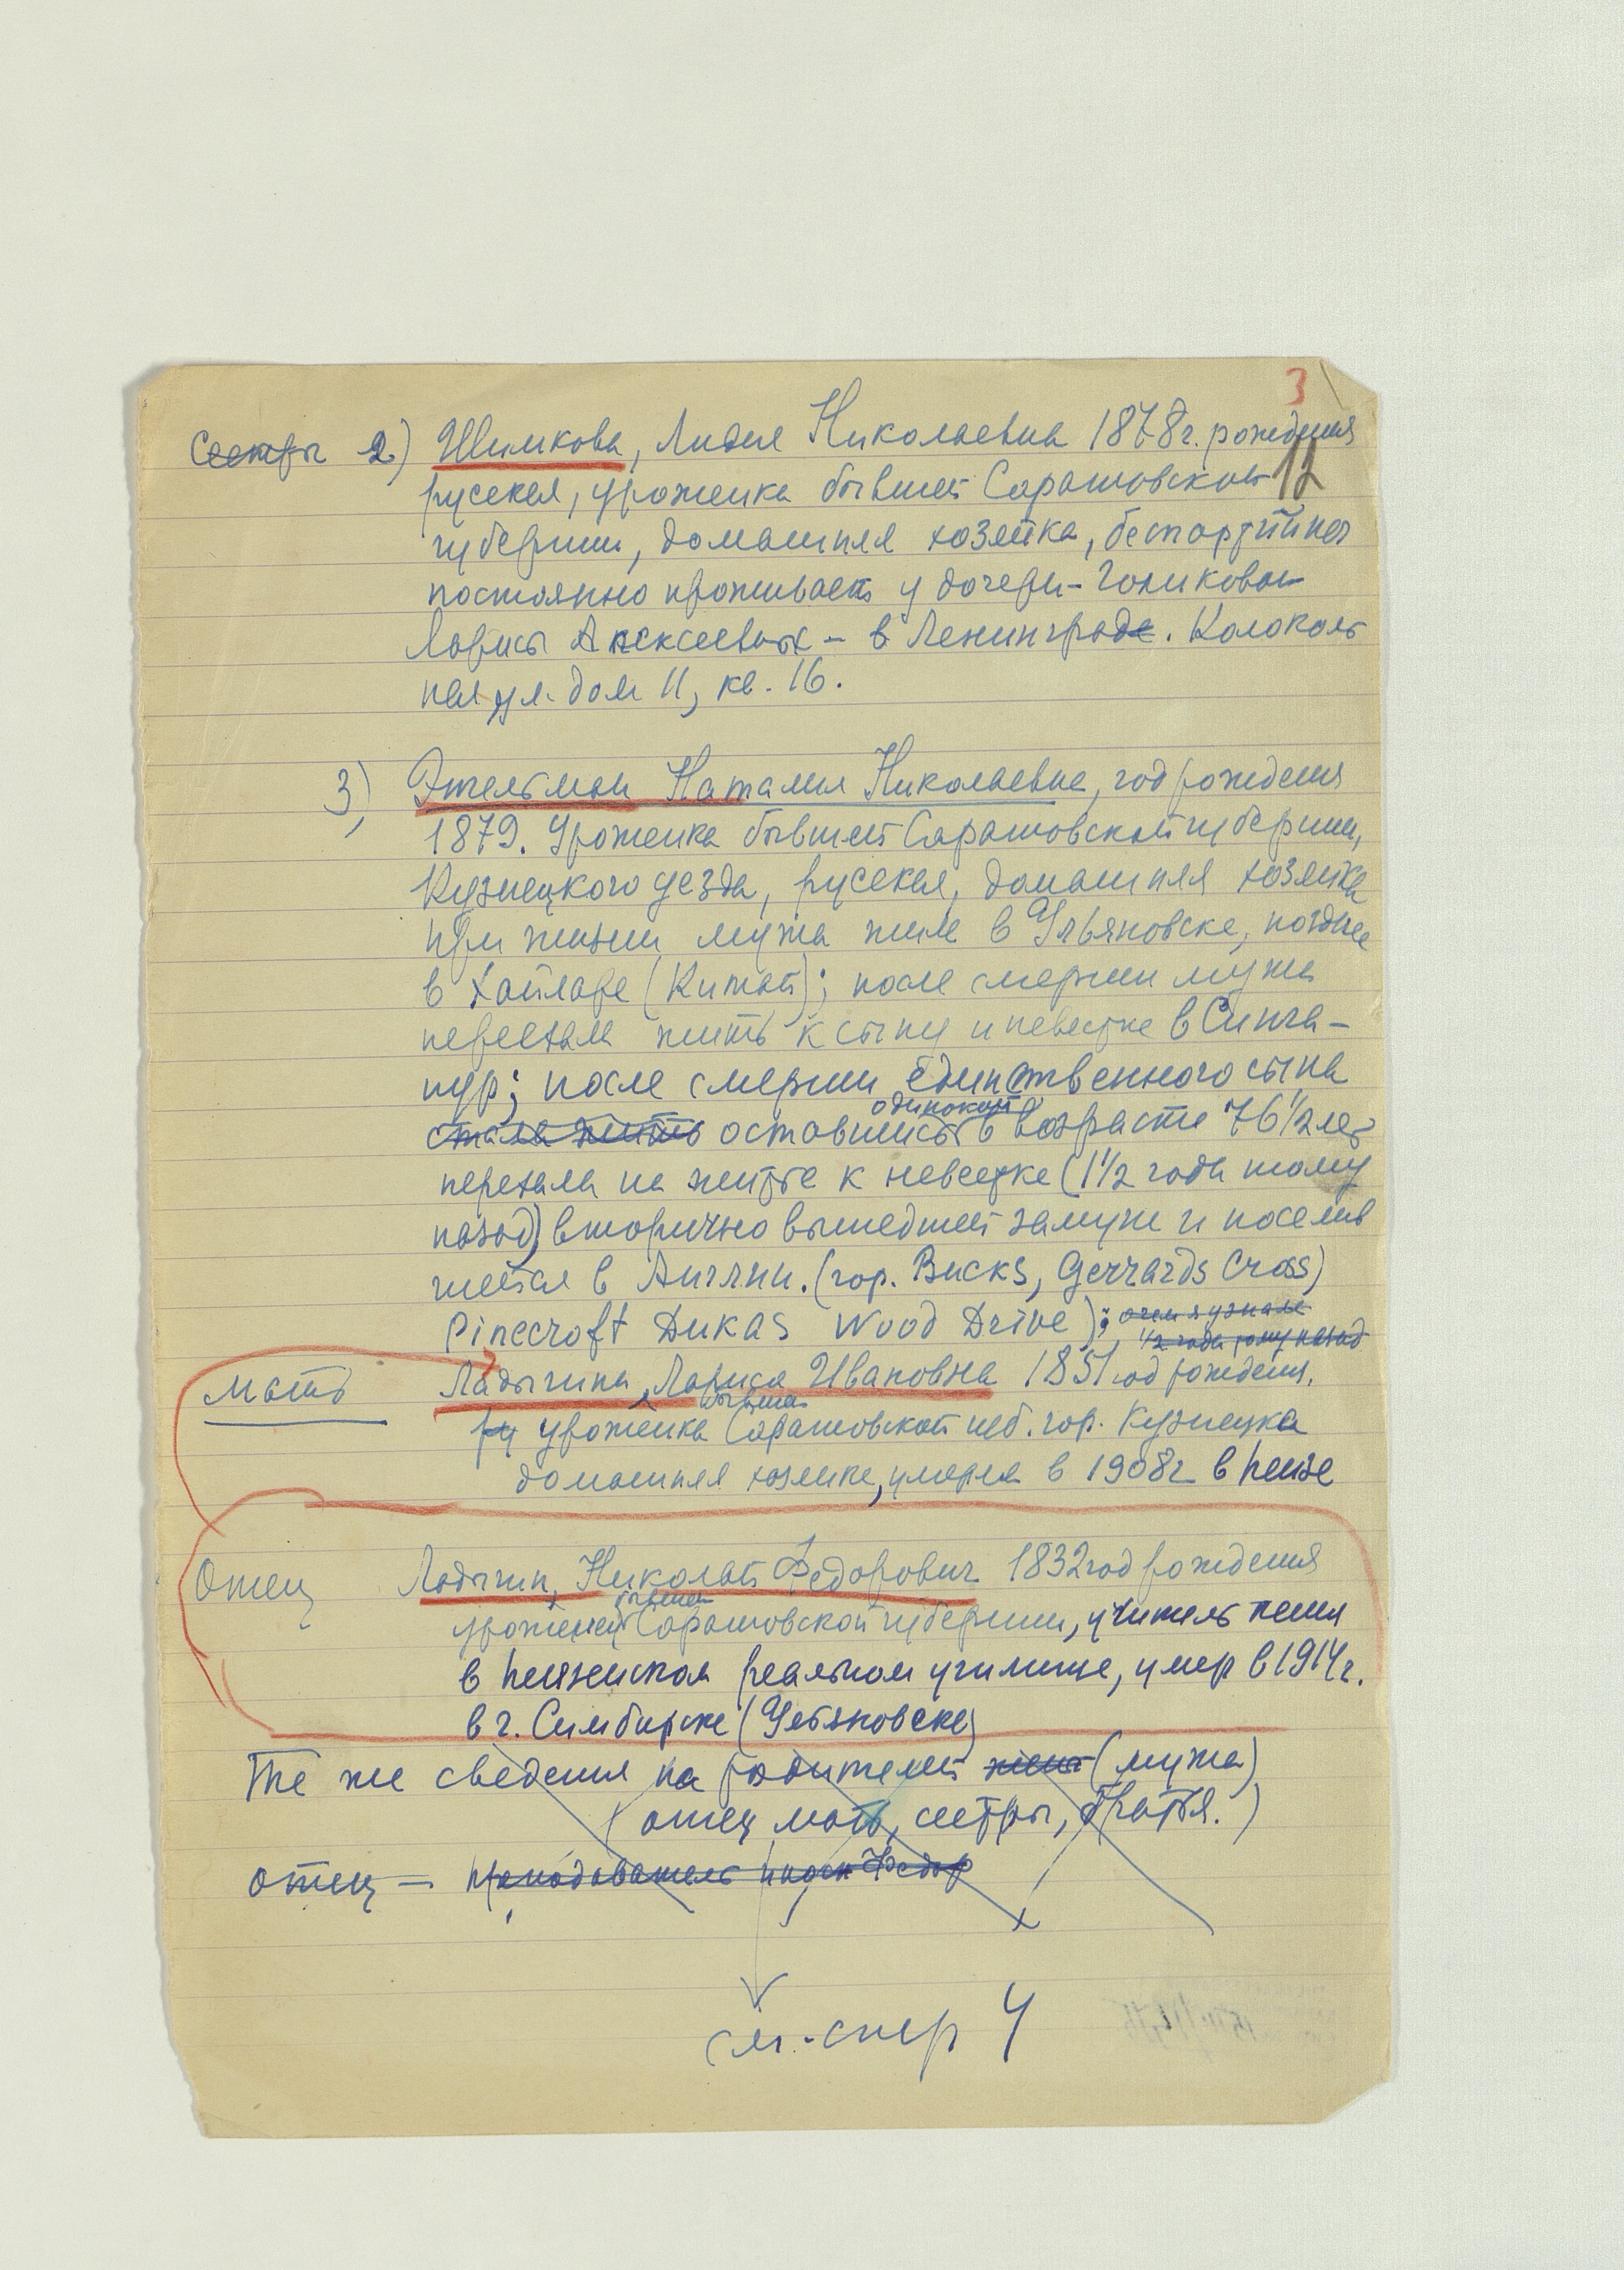 3
Сестры 2) Шимкова, Лидия Николаевна 1878 г. рождения
12
русская, уроженка бывшей Саратовской
губернии, домашняя хозяйка, беспартийная
постоянно проживает у дочери - Голиковой
Ларисы Алексеевны - в Ленинграде. Колоколь
ная ул. дом 11, кв. 16.
3) Наталия Николаевна, год рождения
1879. Уроженка бывшей Саратовской губернии,
Кузнецкого уезда, русская, домашняя хозяйка
при жизни мужа жила в Ульяновске, позднее
в Хайларе (Китай); после смерти мужа
переехала жить к сыну и невестке в Синга-
пур; после смерти единственного сына
одинокой
стала жить оставшись в возрасте 76 1/2 лет
переехала на житье к невестке (1 1/2 года тому
назад) вторично вышедшей замуж и поселив
шейся в Англии. (гор. Bucks, Gerrards Cross)
Pinecroft Dukas Wood Drive); о чем я узнала
1/2 года тому назад
Мать Ладыгина, Лариса Ивановна 1851 год рождения.
бывшая
ру уроженка Саратовской губ. гор. Кузнецка
домашняя хозяйка, умерла в 1908 г в Пензе
Отец Ладыгин, Николай Федорович 1832 год рождения
бывшей
уроженец Саратовской губернии, учитель пения
в Пензенском реальном училище, умер в 1914 г.
в г. Симбирске (Ульяновске)
Те же сведения на родителей жены (мужа)
(отец, мать, сестры, братья.)
отец - преподаватель
см. стр 4